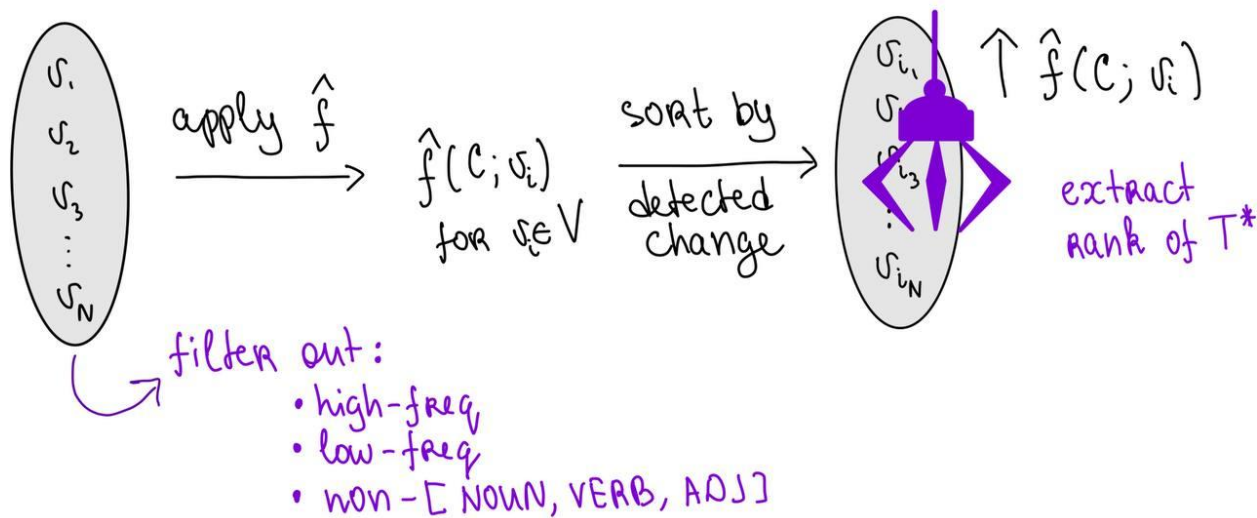 v₁
v₂
v₃
⋮
v_N
apply f̂
f̂(C; vᵢ)
for vᵢ∈V
sort by
detected
change
v_{i₁}
v_{i₃}
⋮
v_{i_N}
↑ f̂(C; vᵢ)
extract
rank of T*
filter out:
• high-freq
• low-freq
• non-[NOUN, VERB, ADJ]